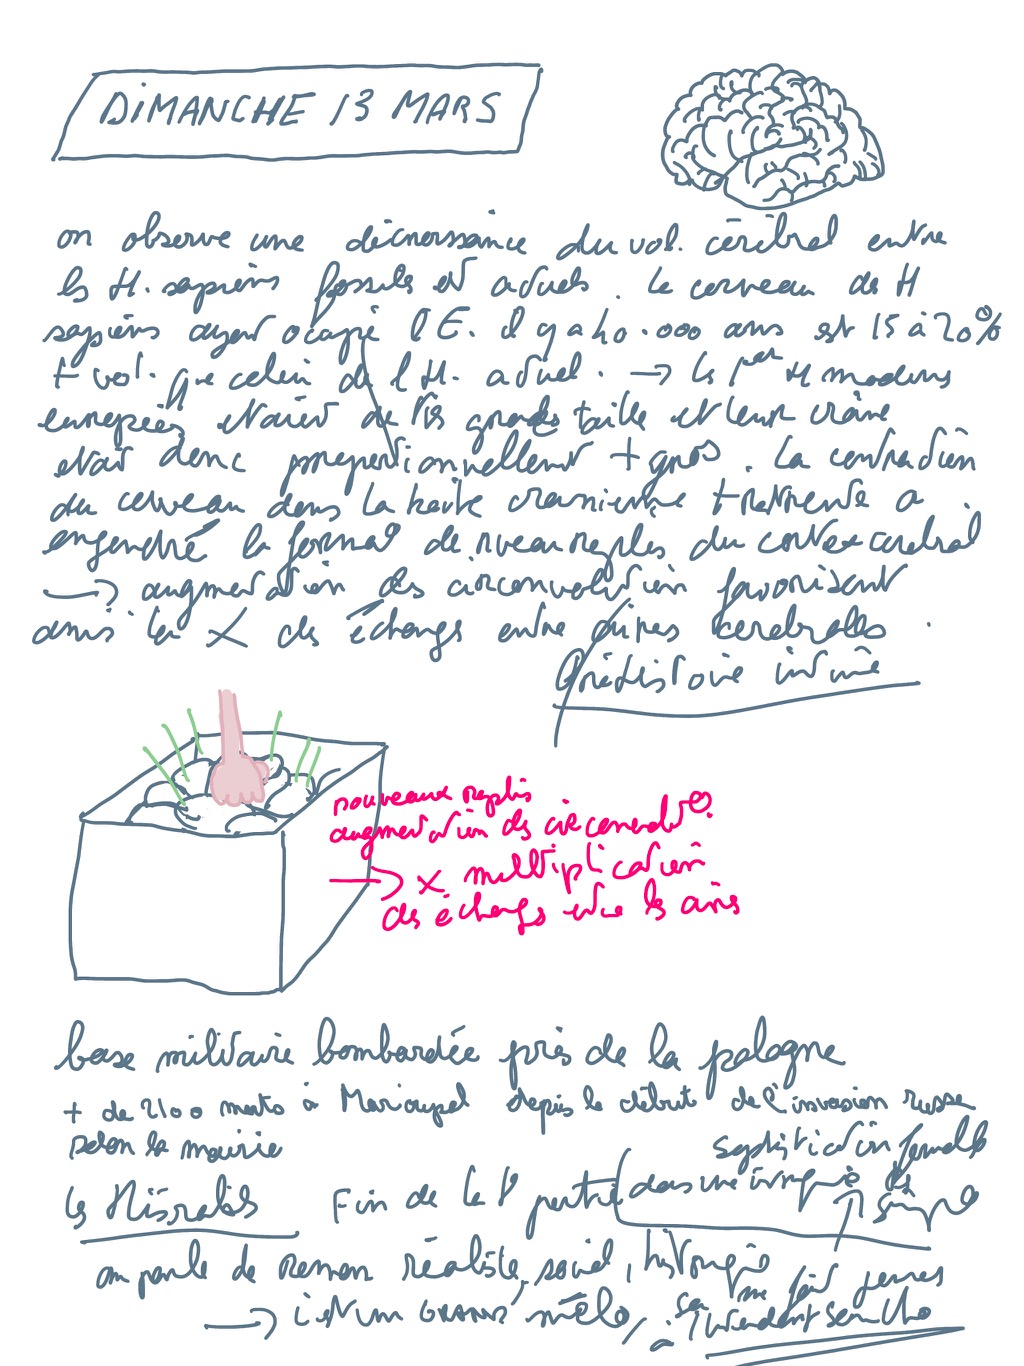 DIMANCHE 13 MARS
on observe une décroissance du vol. cérébral entre
les H. sapiens fossiles et actuels. Le cerveau de H
sapiens ayant occupé l'E. il y a 40.000 ans est 15 à 20%
+ vol. que celui de l'H. actuel. → les 1ers H modernes
européens étaient de très grande taille et leur crâne
était donc proportionnellement + gros. La contraction
du cerveau dans la boîte cranienne + restreinte a
engendré la format° de nveaux replis du cortex cérébral
→ augmentation des circonvolution favorisent
ainsi la X des échanges entre aires cérébrales.
Préhistoire intime
nouveaux replis
augmentation des circonvolut°
→ X multiplication
des échanges entre les aires
base militaire bombardée près de la pologne
+ de 2100 morts à Marioupol depuis le début de l'invasion russe
selon la mairie
sophistication formelle
les Misérables Fin de la 1° partie dans une intrigue
simple
on parle de roman réaliste, social, historique
me fait
→ c'est un GRAND mélo,